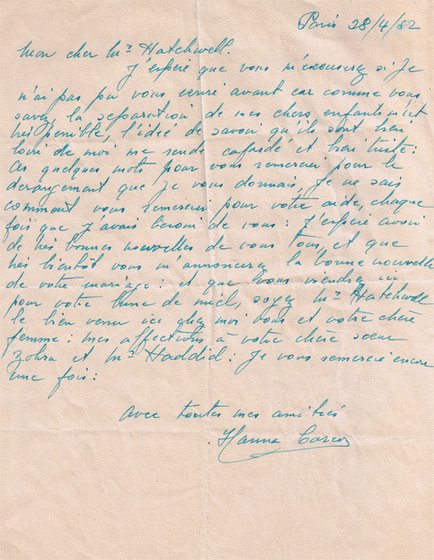 Paris 28/4/52
Mon cher Mr Hatchwell.
J'espère que vous m'excuserez si Je
n'ai pas pu vous ecrire avant car comme vous
savez la separation de mes chers enfants m'est
très penible, l'idée de savoir qu'ils sont bien
loin de moi me rends cafardé et bien triste:
Ces quelques mots pour vous remercier pour le
derangement que Je vous donnais, Je ne sais
comment vous remercier pour votre aide, chaque
fois que J'avais besoin de vous: J'espère avoir
de très bonnes nouvelles de vous tous, et que
très bientôt vous m'annoncerez la bonne nouvelle
de votre mariage: et que vous viendrez ici
pour votre lune de miel, soyez Mr Hatchwell
le bien venu ici chez moi vous et votre chère
femme: mes affections à votre chère soeur
Zohra et Mr Haddid. Je vous remercie encore
une fois:
avec toutes mes amitiés
Hanna